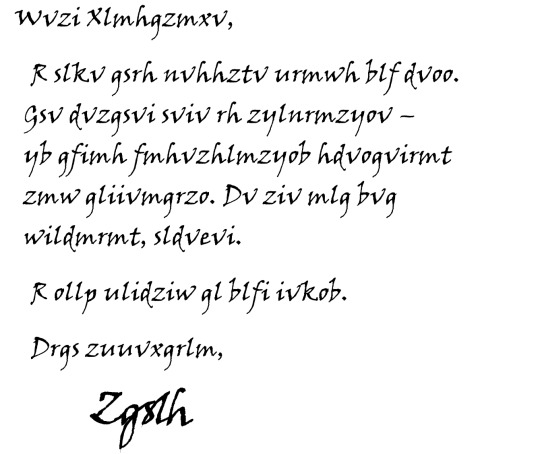 Wvzi Xlmhgzmxv,
R slkv gsrh nvhhztv urmwh blf dvoo.
Gsv dvzgsvi sviv rh zylnrmzyov –
yb gfimh fmhvzhlmzyob hdvogvirmt
zmw gliivmgrzo. Dv ziv mlg bvg
wildmrmt, sldvevi.
R ollp ulidziw gl blfi ivkob.
Drgs zuuvxgrlm,
Zgslh